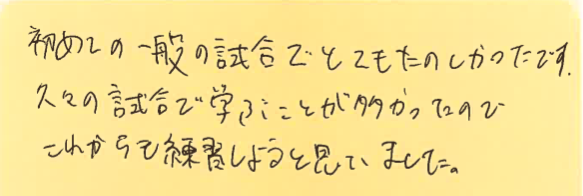 初めての一般の試合でとてもたのしかったです.
久々の試合で学ぶことが多かったので
これからも練習しようと思いました。